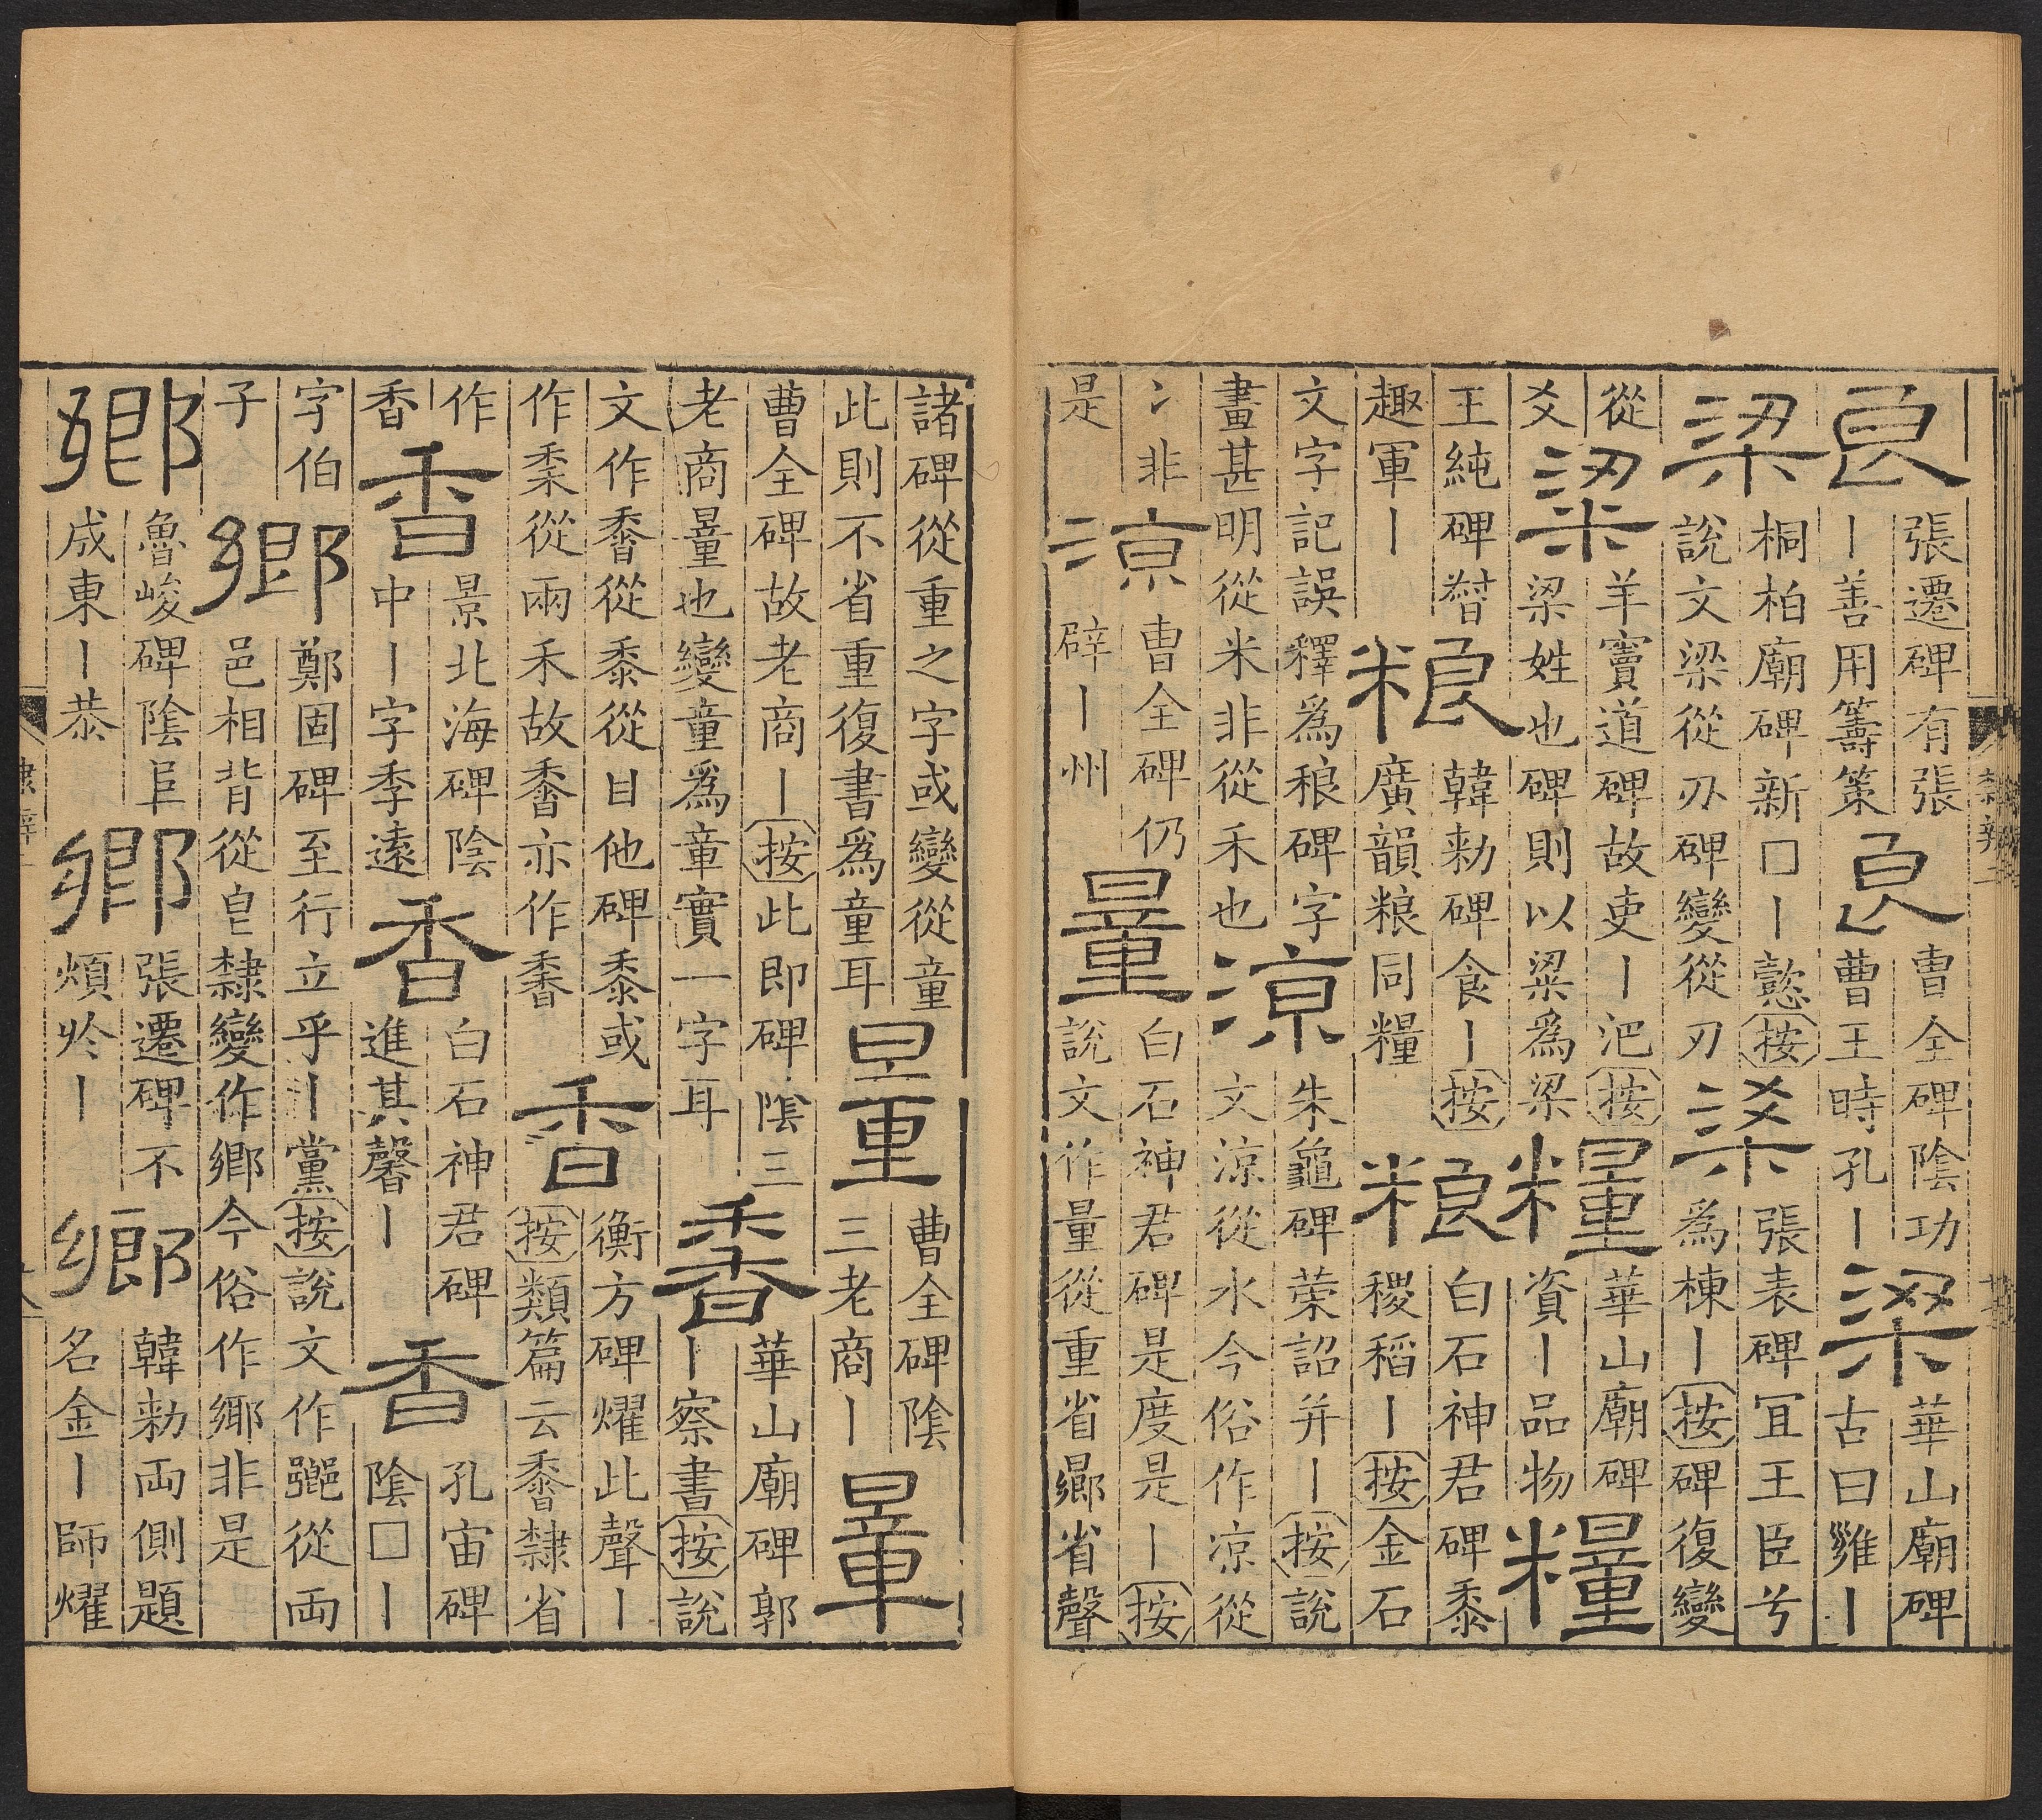 良
張遷碑有張
丨善用籌策
良
曹全碑陰功
曹王時孔丨
梁
華山廟碑
古曰雝丨
梁
桐柏廟碑新□丨懿按
說文梁從刅碑變從刃
梁
張表碑冝王臣兮
爲棟丨按碑復變
從
爻
粱
羊竇道碑故吏丨汜按
梁姓也碑則以粱爲梁
糧
華山廟碑
資丨品物
糧
王純碑
趣軍丨
粮
韓勑碑食丨按
廣韻粮同糧
粮
白石神君碑黍
稷稻丨按金石
文字記誤釋爲稂碑字
畫甚明從米非從禾也
涼
朱龜碑榮詔并丨按說
文涼從水今俗作凉從
冫非
是
凉
曹全碑仍
辟丨州
量
白石神君碑是度是丨按
說文作量從重省曏省聲
諸碑從重之字或變從童
此則不省重復書爲童耳
量
曹全碑陰
三老商丨
量
曹全碑故老商丨按此即碑陰三
老商量也變童爲章實一字耳
香
華山廟碑郭
丨察書按說
文作黁從黍從甘他碑黍或
作秉從兩禾故香亦作香
香
衡方碑燿此聲丨
按類篇云香隸省
作
香
香
景北海碑陰
中丨字季遠
香
白石神君碑
進其馨丨
香
孔宙碑
陰□丨
字伯
子
鄉
鄭固碑至行立乎丨黨按說文作從兩
邑相背從皀隸變作鄉今俗作鄊非是
鄉
魯峻碑陰
成東丨恭
鄉
張遷碑不
煩於丨
鄉
韓勑兩側題
名金丨師燿